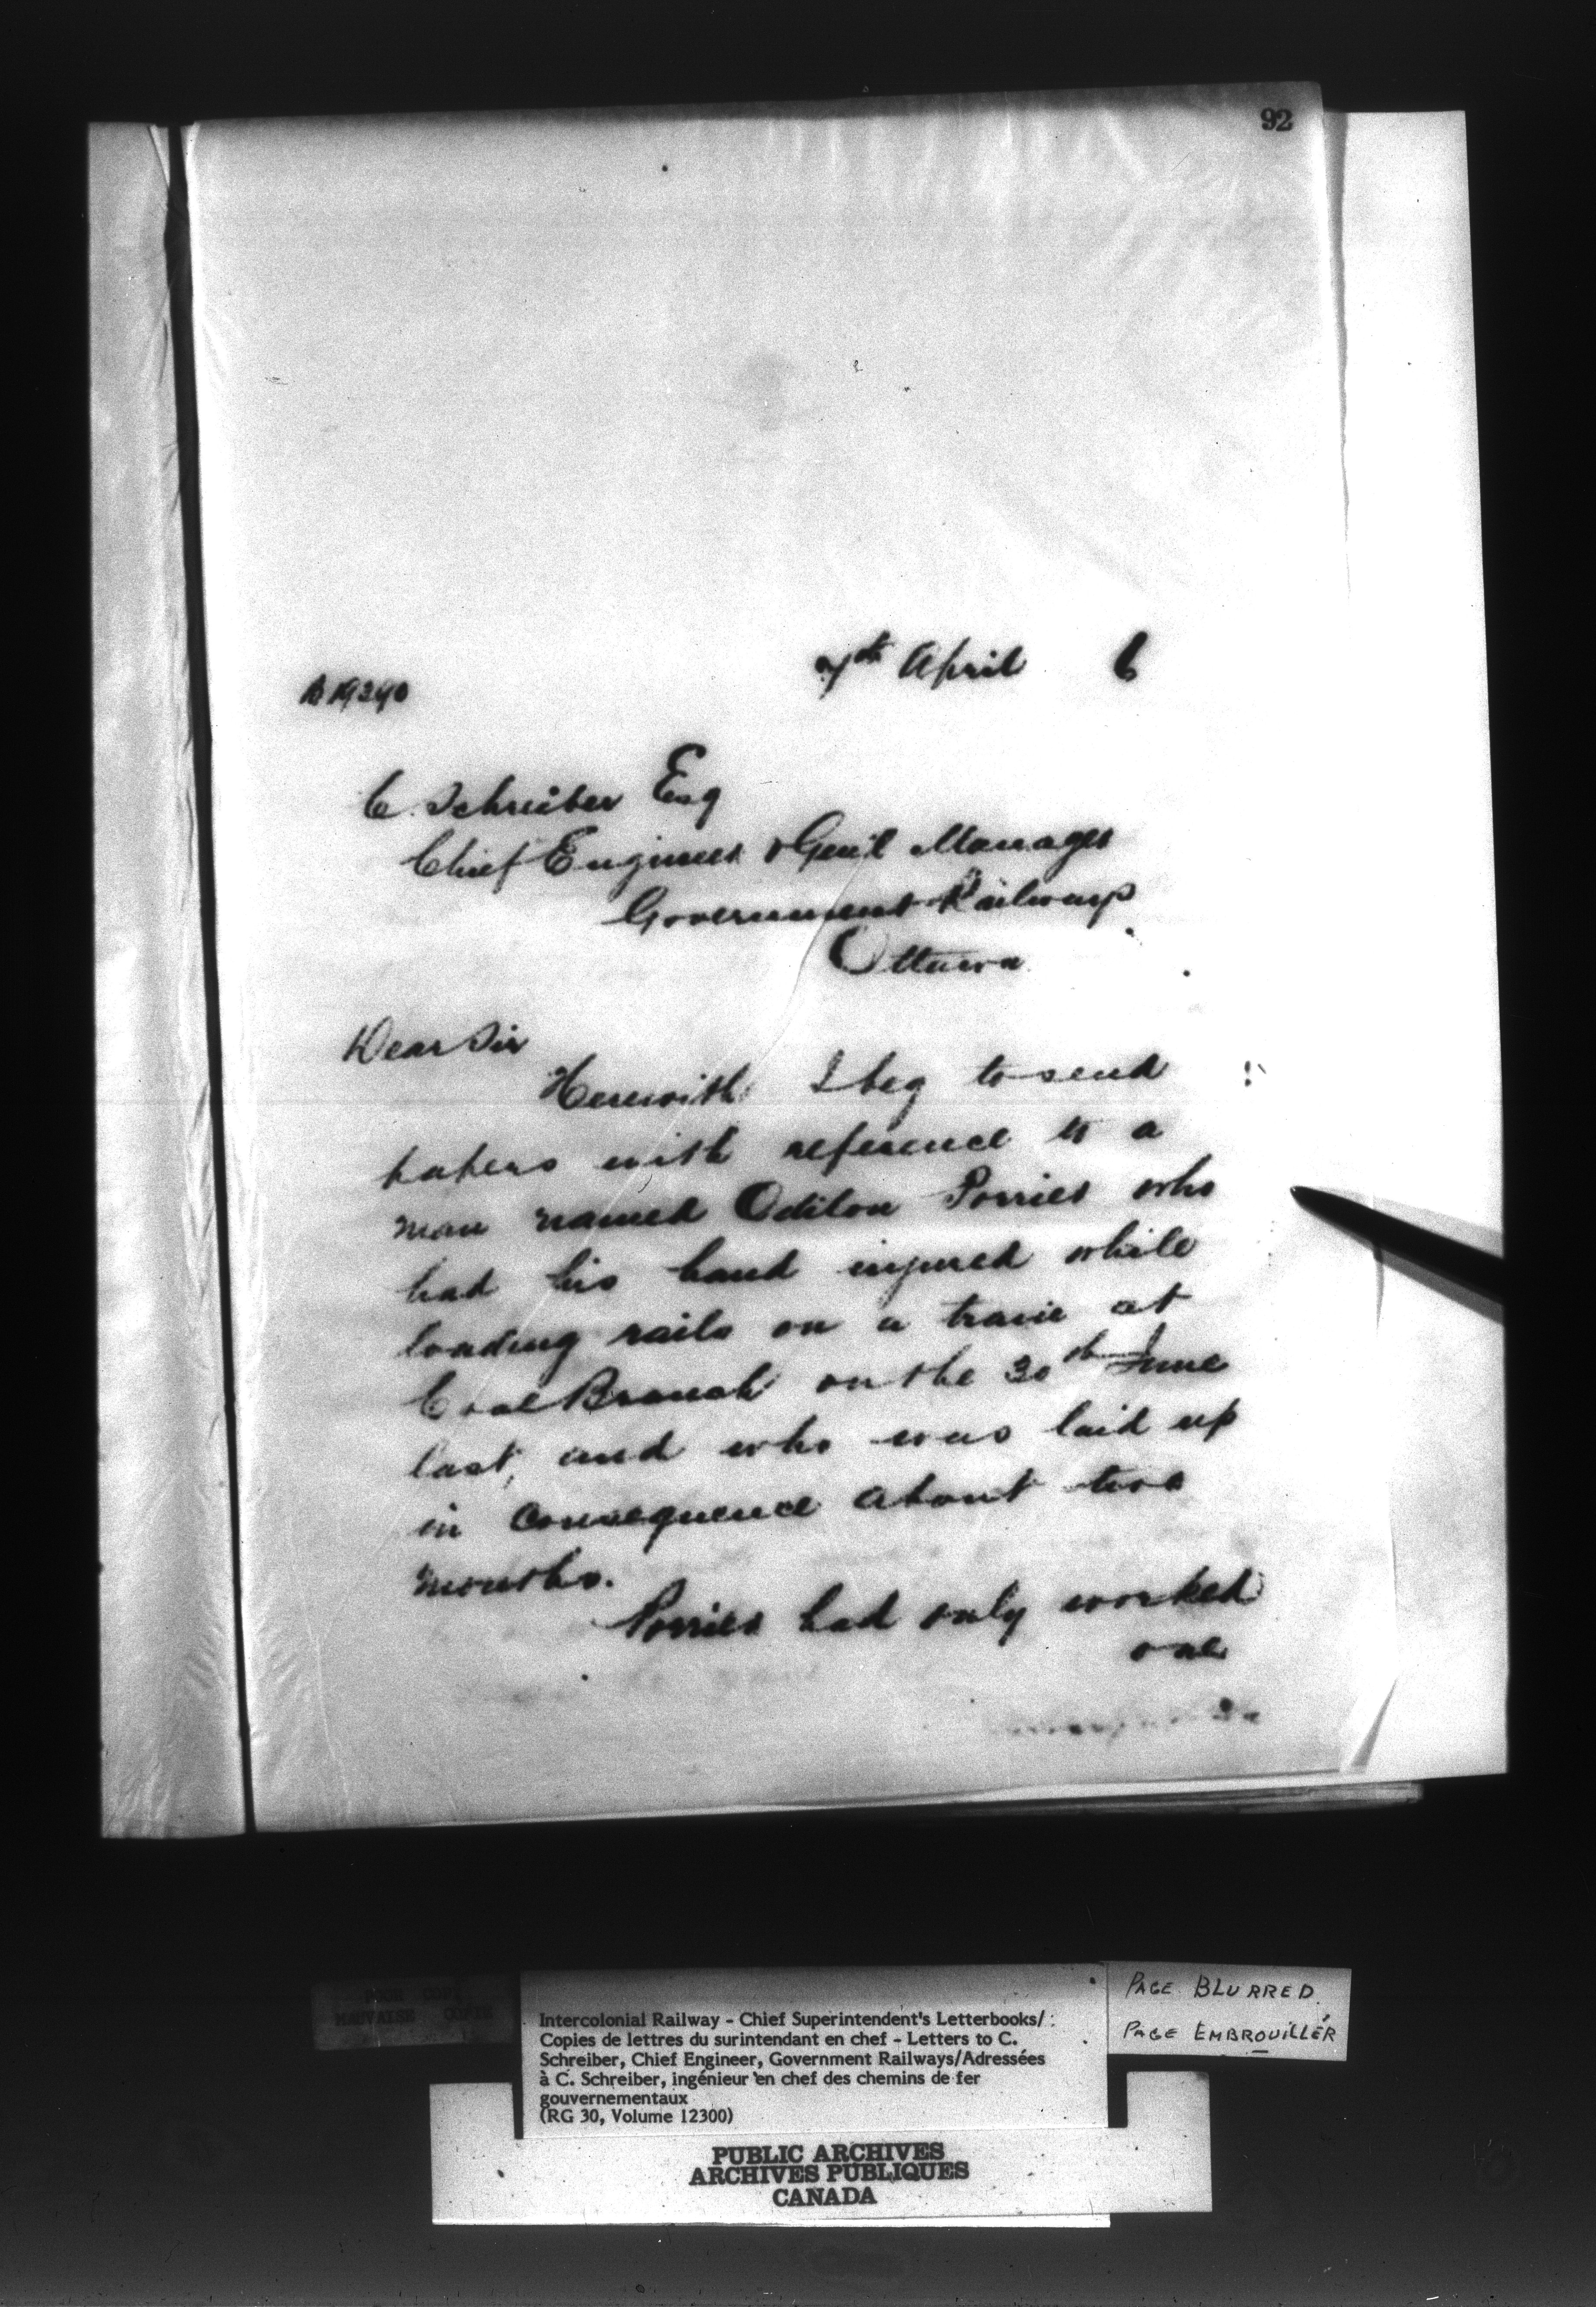 92
7th April 6
C. Schreiber Esq
Chief Engineer & Gen'l Manager
Government Railways
Ottawa
Dear Sir
Herewith I beg to send
papers with reference to a
man named Odilon Porrier who
had his hand injured while
loading rails on a train at
Coal Branch on the 30th June
last, and who was laid up
in consequence about two
months.
Porrier had only worked
one
PAGE BLURRED
PAGE EMBROUILLÉR
MAUVAISE COPIE
Intercolonial Railway - Chief Superintendent's Letterbooks/
Copies de lettres du surintendant en chef - Letters to C.
Schreiber, Chief Engineer, Government Railways/Adressées
à C. Schreiber, ingénieur en chef des chemins de fer
gouvernementaux
(RG 30, Volume 12300)
PUBLIC ARCHIVES
ARCHIVES PUBLIQUES
CANADA